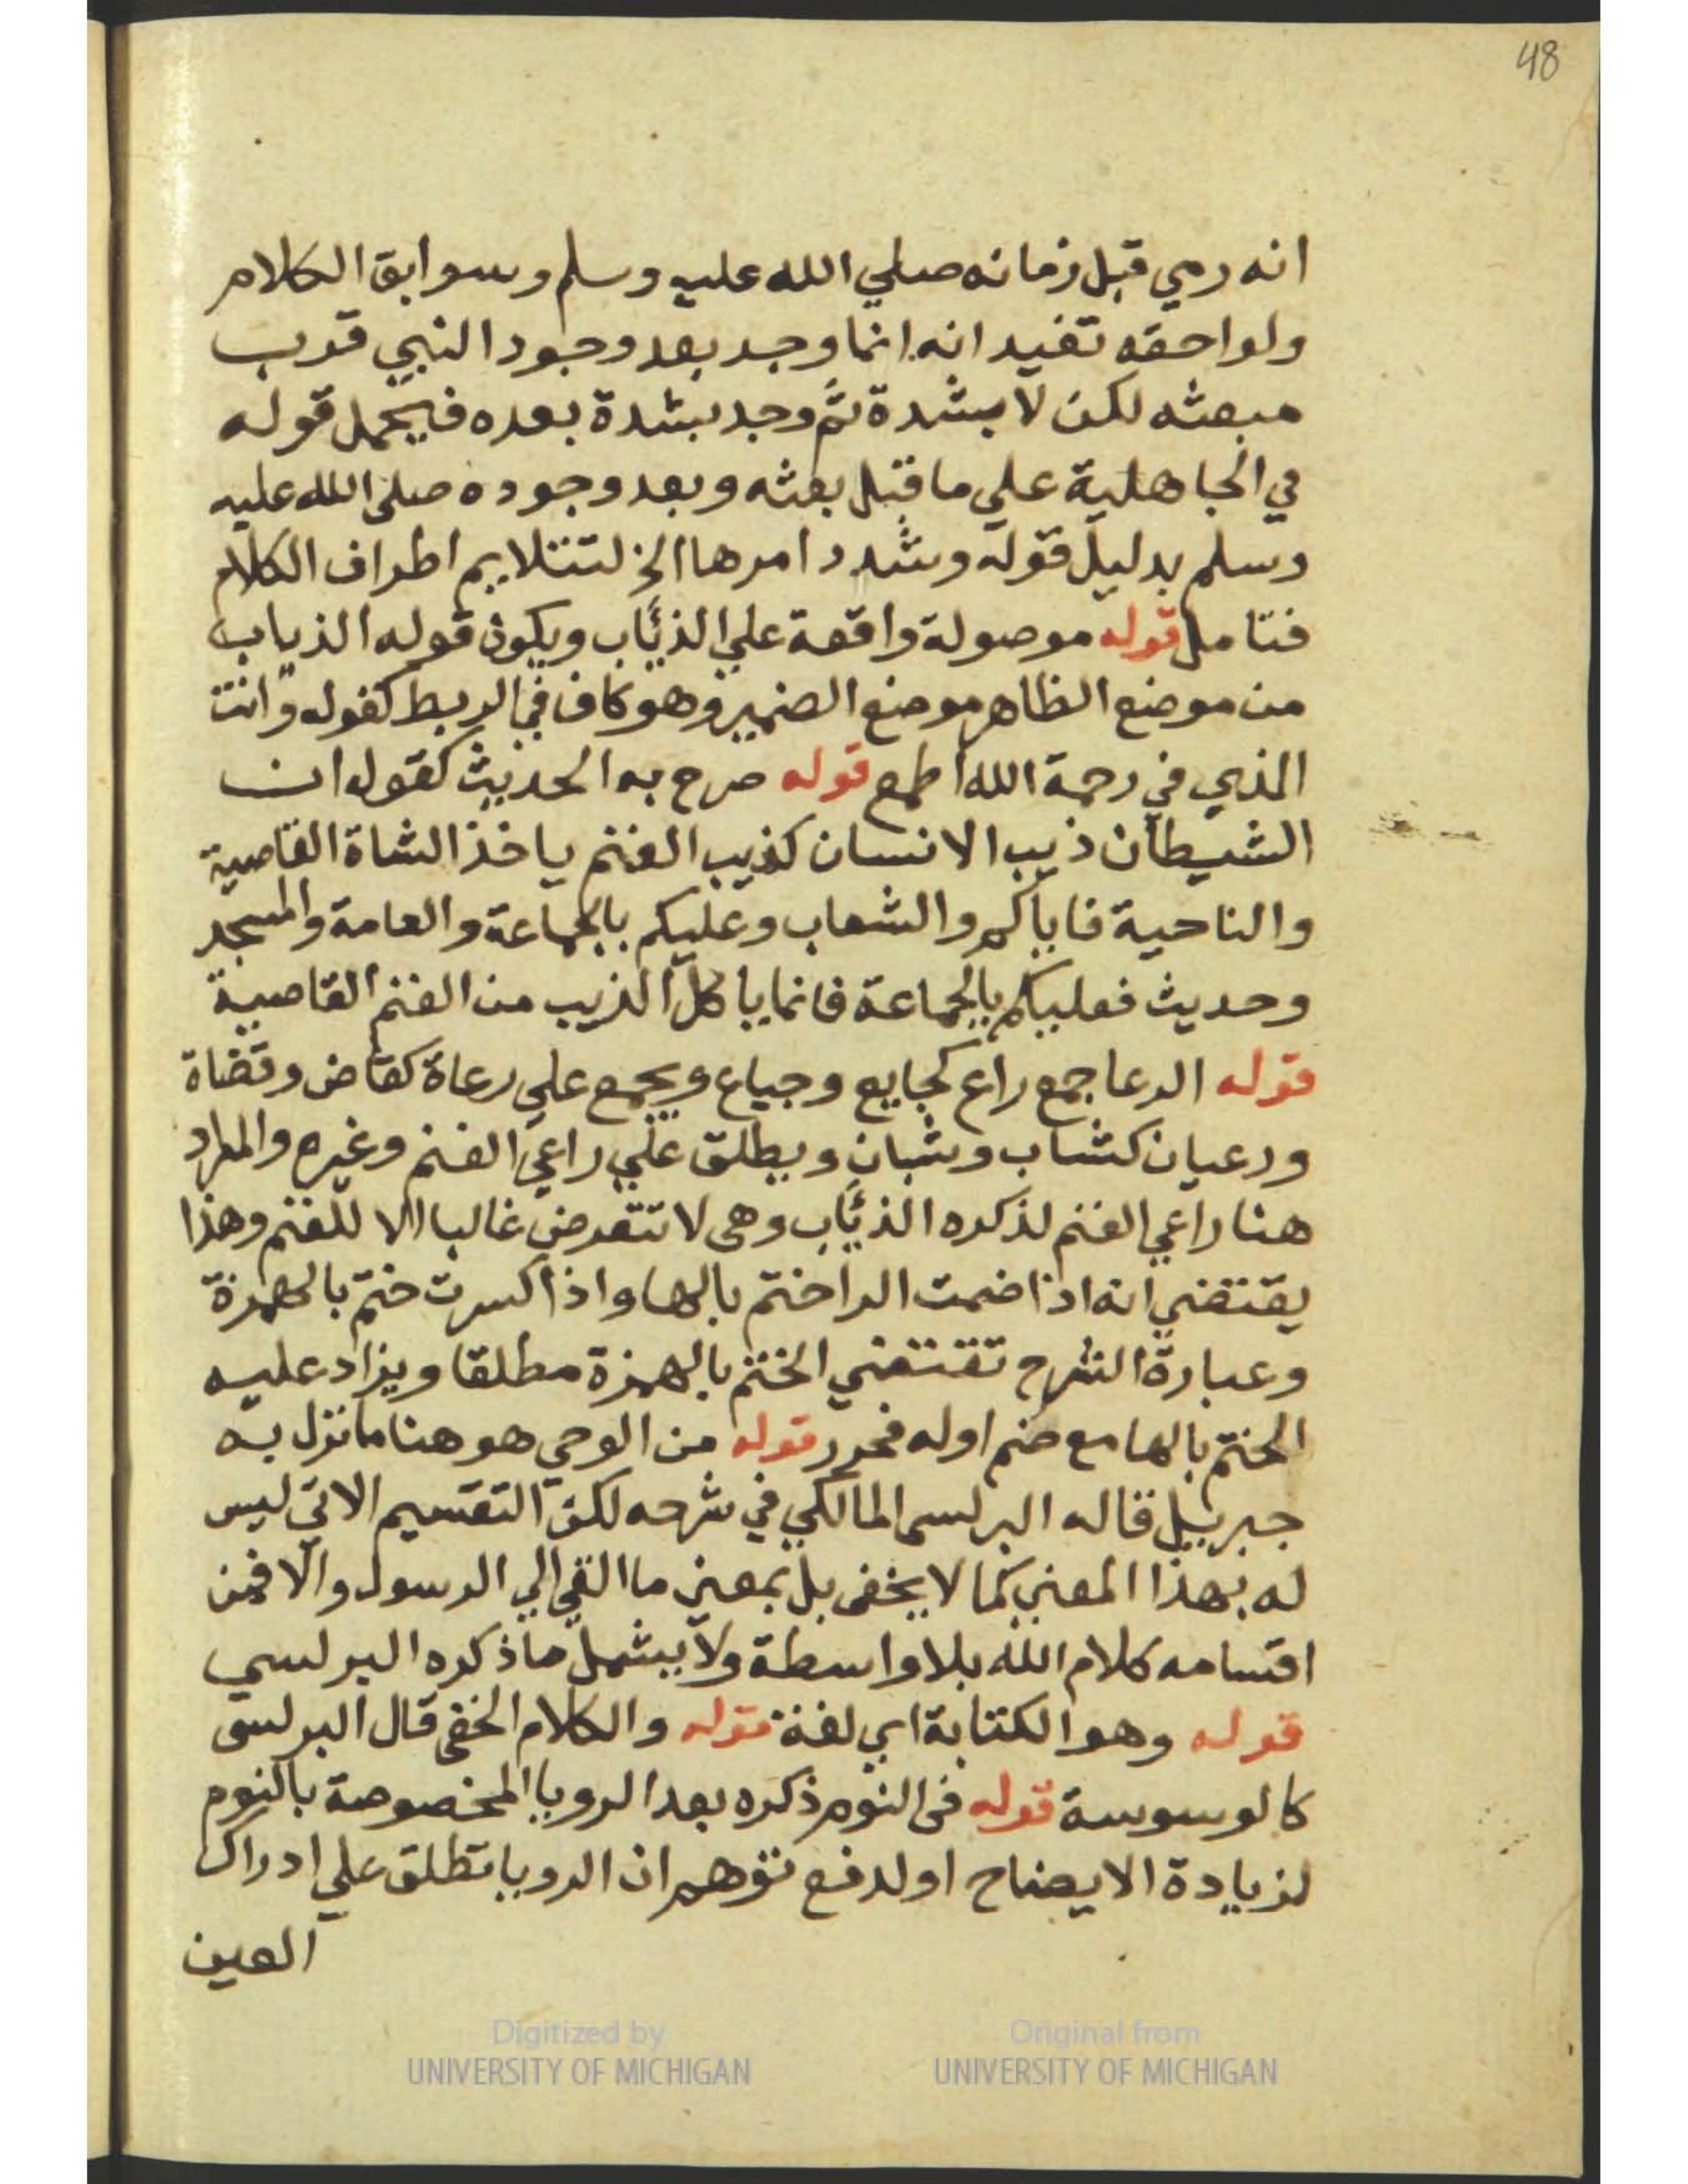 48
انه رمي قبل زمانه صلي الله عليه وسلم وسوابق الكلام
ولواحقه تفيد انه انما وجد بعد وجود النبي قرب
مبعثه لكن لا بشدة ثم وجد بشدة بعده فيحمل قوله
في الجاهلية علي ما قبل بعثه وبعد وجوده صلى الله عليه
وسلم بدليل قوله وشدد امرها الخ لتتلايم اطراف الكلام
فتامل قوله موصولة واقعة علي الذئاب ويكون قوله الذياب
من موضع الظاهر موضع الضمير وهو كاف في الربط كقوله وانت
الذي في رحمة الله اطمع قوله صرح به الحديث كقوله ان
الشيطان ذيب الانسان كذيب الغنم ياخذ الشاة القاصية
والناحية فاياكم والشعاب وعليكم بالجماعة والعامة والمسجد
وحديث فعليكم بالجماعة فانما ياكل الذيب من الغنم القاصية
قوله الرعا جمع راع كجايع وجياع ويجمع علي رعاة كقاض وقضاة
ورعيان كشاب وشبان ويطلق علي راعي الغنم وغيره والمراد
هنا راعي الغنم لذكره الذئاب وهى لا تتعرض غالبا الا للغنم وهذا
يقتضي انه اذا ضمت الرا ختم بالها واذا كسرت ختم بالهمزة
وعبارة الشرح تقتضي الختم بالهمزة مطلقا ويزاد عليه
الختم بالها مع ضم اوله فحرر قوله من الوحي هو هنا ما نزل به
جبريل قاله البرلسى المالكي في شرحه لكن التقسيم الاتي ليس
له بهذا المعني كما لا يخفى بل بمعني ما القي الي الرسول والا فمن
اقسامه كلام الله بلا واسطة ولا يشمل ما ذكره البرلسي
قوله وهو الكتابة اي لغة قوله والكلام الخفى قال البرلسى
كالوسوسة قوله فى النوم ذكره بعد الرويا المخصوصة بالنوم
لزيادة الايضاح او لدفع توهم ان الرويا تطلق علي ادراك
العين
Digitized by
UNIVERSITY OF MICHIGAN
Original from
UNIVERSITY OF MICHIGAN